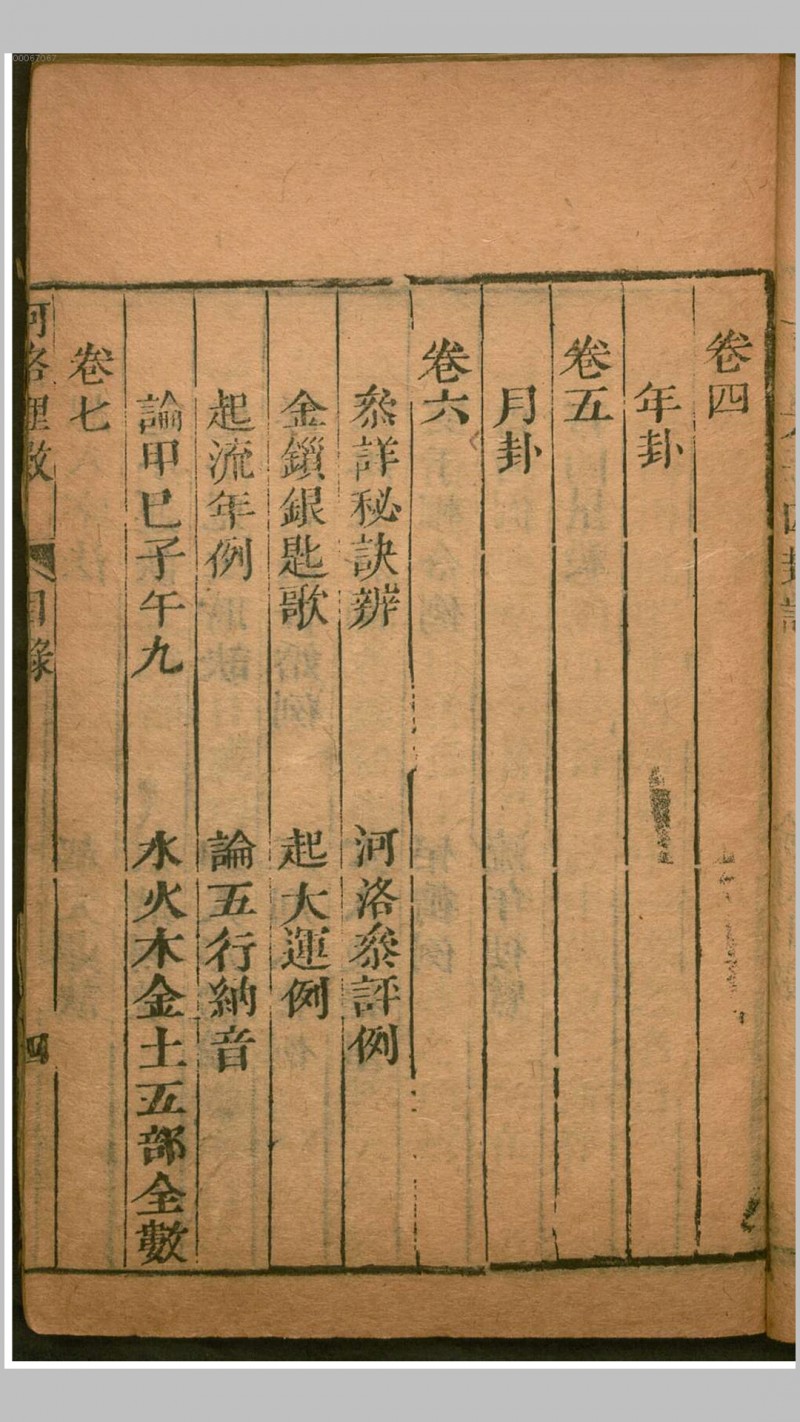 卷四
年卦
卷五
月卦
卷六
叅詳秘訣辨 河洛叅評例
金鎖銀匙歌 起大運例
起流年例 論五行納音
論甲巳子午九 水火木金土五部全數
卷七
河洛理數 目錄 四
00067067